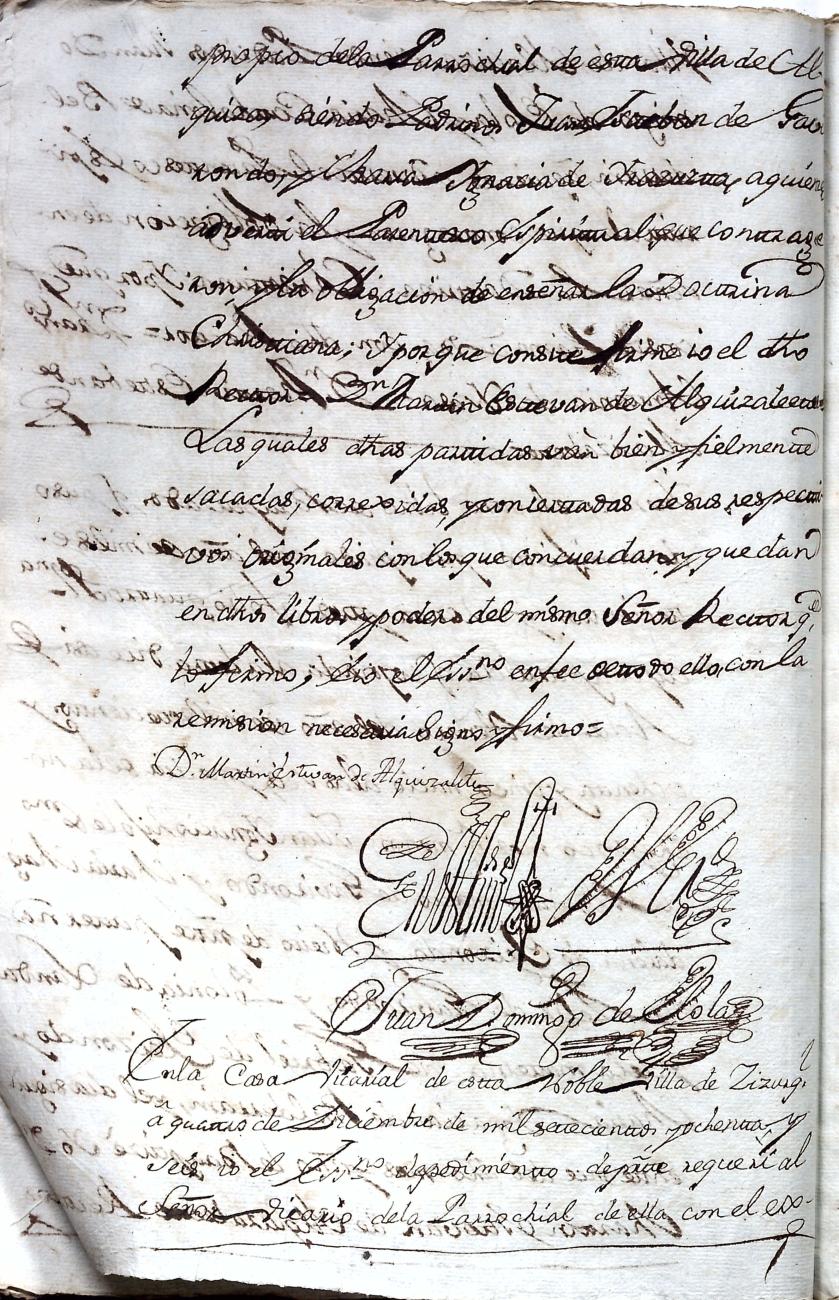 propio dela Parrochial de esta Villa de Al
quiza, siendo Padrinos Juan Esteban de Gai
rondo, y Maria Ignacia de aquiene
adverti el Parentesco Spiritual que contrage
ron, y la obligacion de enseñar la Doctrina
Christiana; Y por que conste firme io el dho
Rector = Dn Martin Estevan de Alquizalete=
Las quales dhas partidas ban bien y fielmente
sacadas, correxidas, y concertadas de sus respecti
vos originales con los que concuerdan, y quedan
en dhos libros, y poder del mismo Señor Rector q.e
lo firmo, é io el Ssno en fee de todo ello, con la
remision necesaria Signo y firmo=
Dn. Martin Estevan de Alquizalete
Juan Domingo de Elola
En la Casa Vicarial de esta Noble Villa de Zizurql
a quatro de Diciembre de mil setecientos, y ochenta, y
seis io el Essno de pedimento de pa͠te requeri al
Señor Vicario dela Parrochial de ella con el ex-